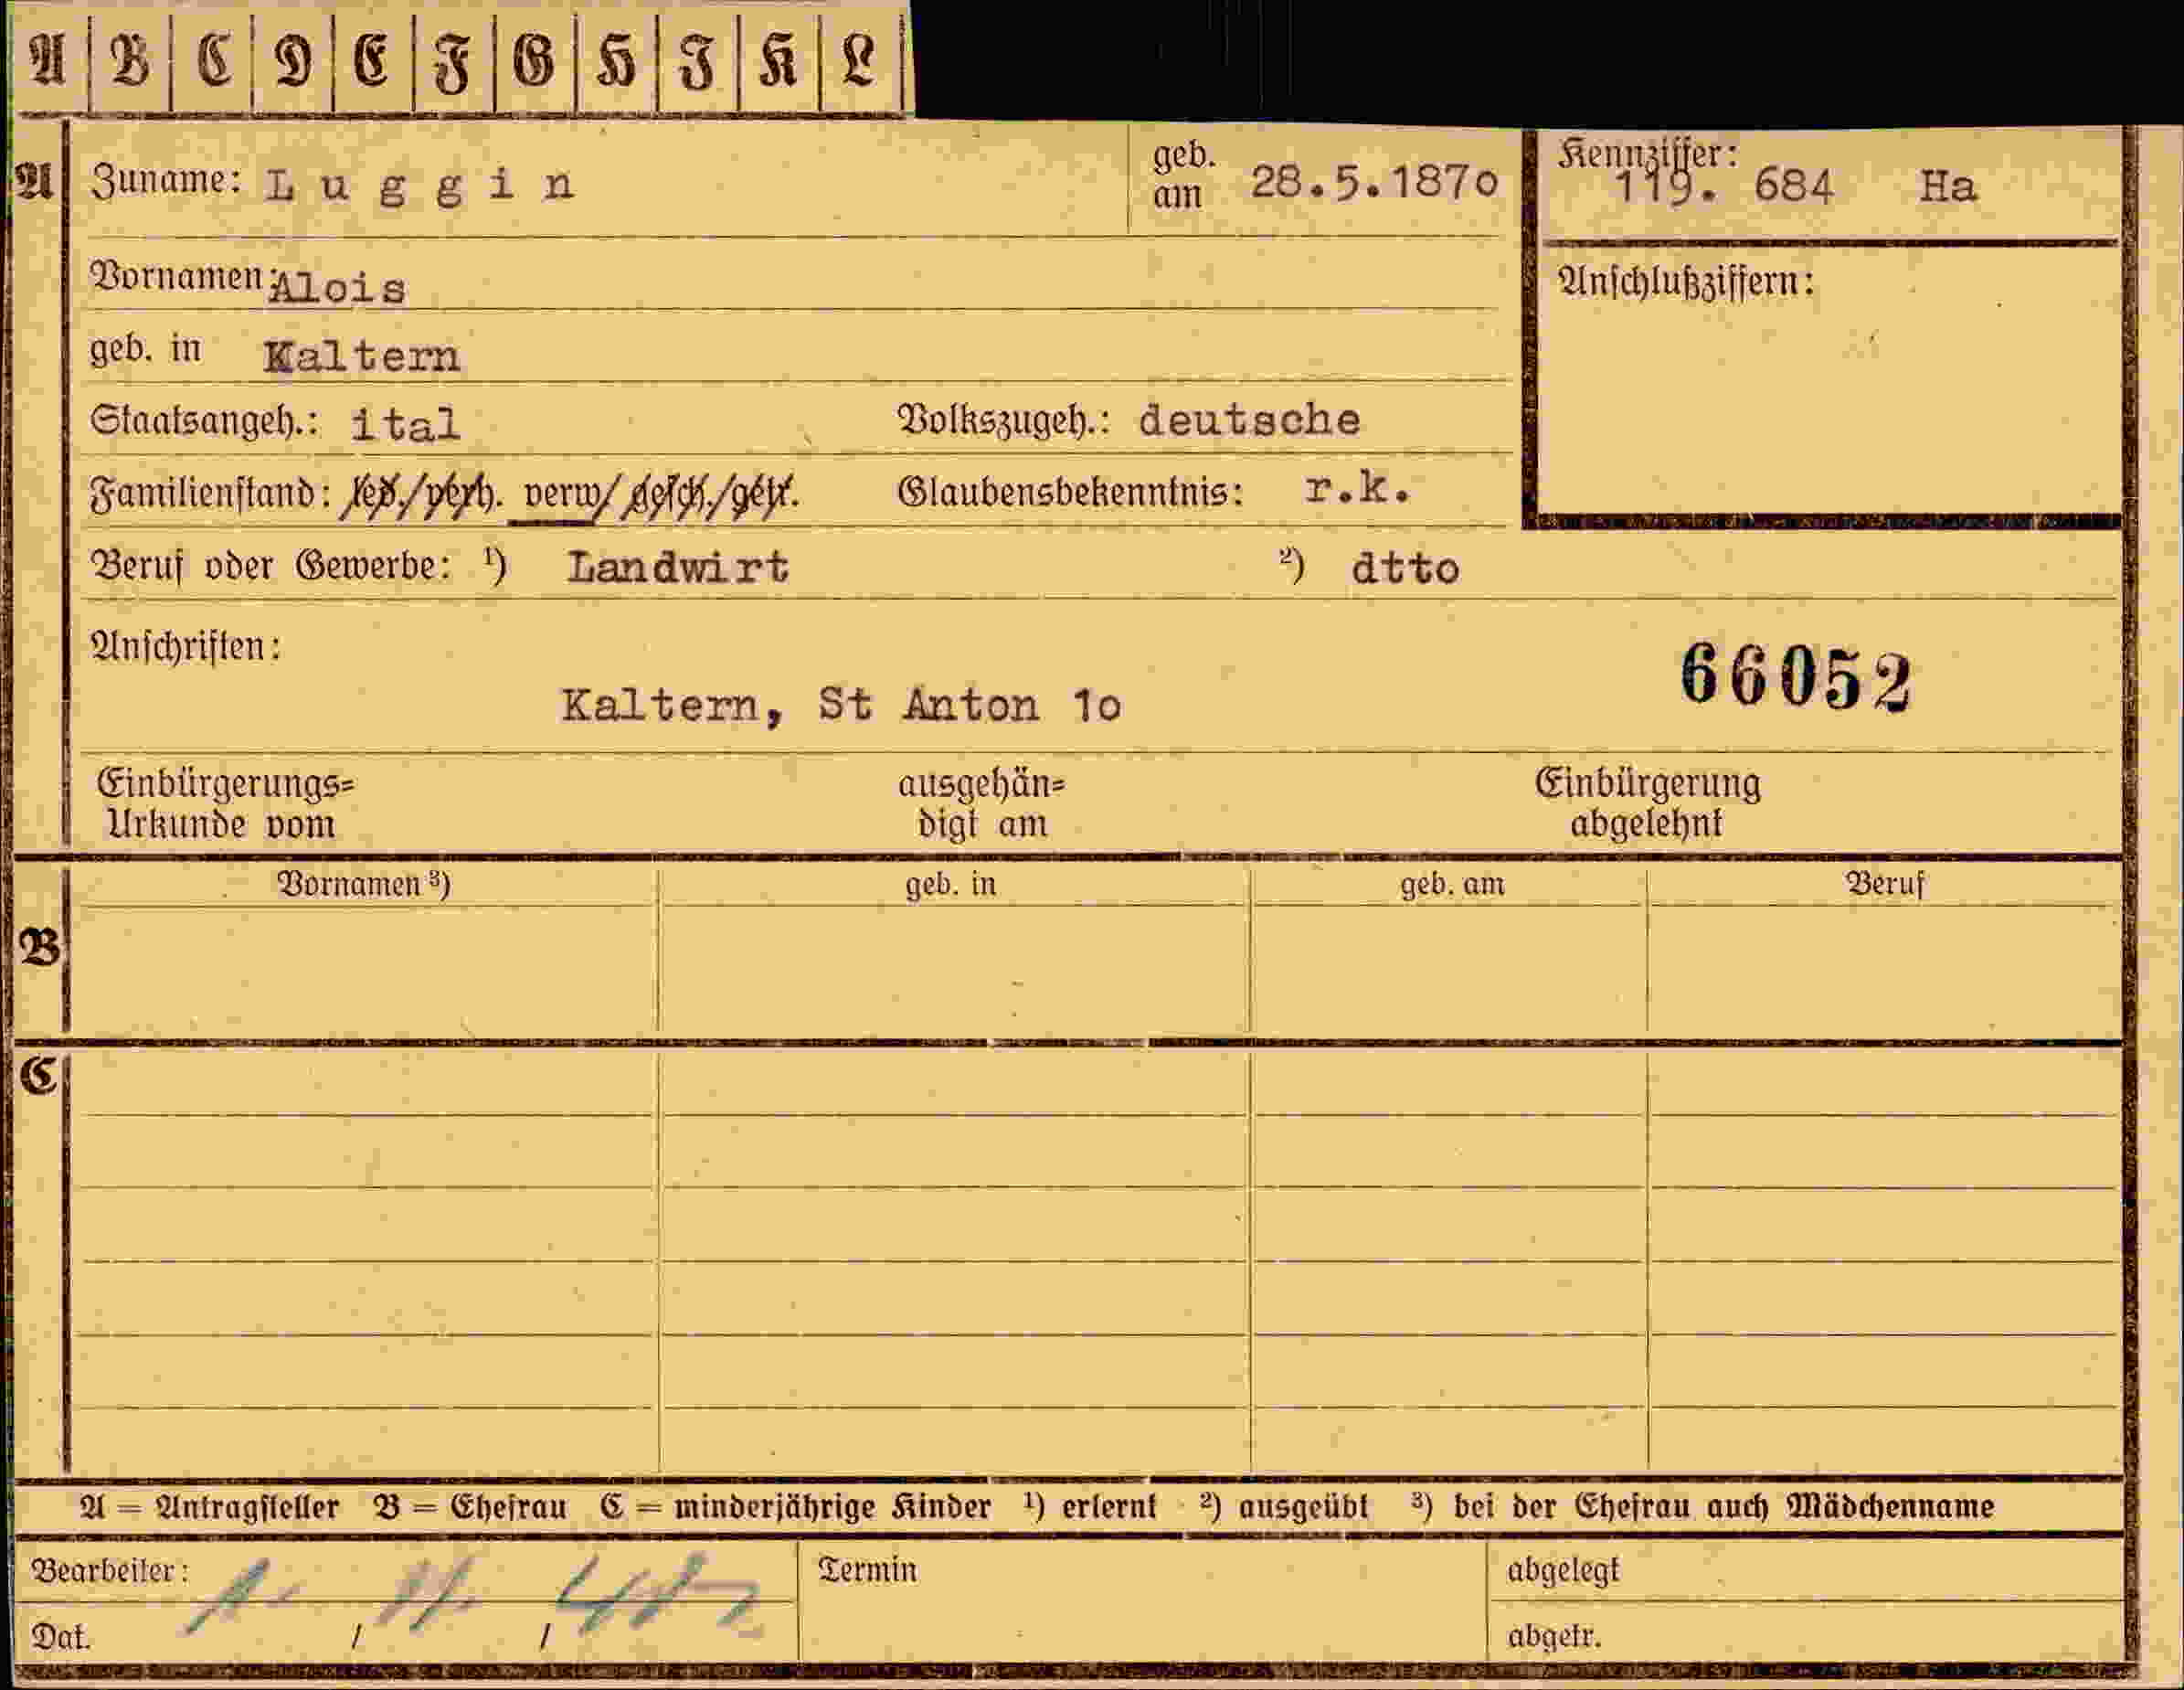 A B C D E F G H I K L
A Zuname: Luggin geb. am 28.5.187o Kennziffer: 119. 684 Ha
Vornamen: Alois Anschlußziffern:
geb. in Kaltern
Staatsangeh.: ital Volkszugeh.: deutsche
Familienstand: led./verh. verw/ gesch./getr. Glaubensbekenntnis: r.k.
Beruf oder Gewerbe: ¹) Landwirt ²) dtto
Anschriften:
66052
Kaltern, St Anton 1o
Einbürgerungs= ausgehän= Einbürgerung
Urkunde vom digt am abgelehnt
Vornamen ³) geb. in geb. am Beruf
B
C
A = Antragsteller B = Ehefrau C = minderjährige Kinder ¹) erlernt ²) ausgeübt ³) bei der Ehefrau auch Mädchenname
Bearbeiter: Termin abgelegt
Dat. / / abgetr.